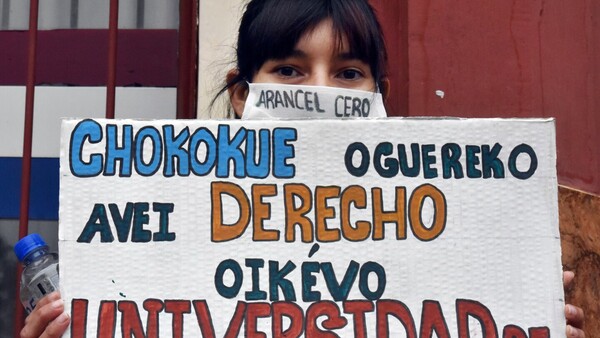 ARANCEL CERO
CHOKOKUE OGUEREKO
AVEI DERECHO
OIKÉVO
UNIVERSIDAD PE